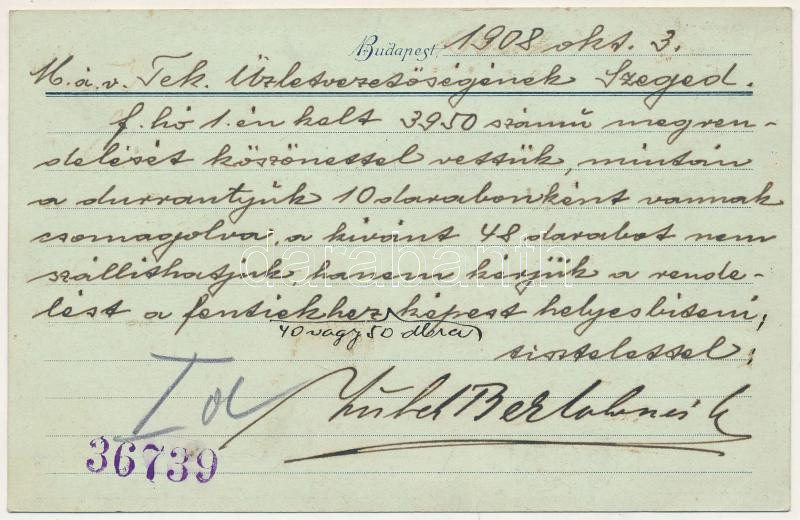 Budapest, 1908 okt. 3.
M. á. v. Tek. Üzletvezetőségének Szeged.
f. hó 1.-én kelt 3950 számú megren-
delését köszönettel vettük, mintán
a durrantyúk 10 darabonként vannak
csomagolva, a kívánt 48 darabot nem
szállithatjuk, hanem kérjük a rende-
lést a fentiekhez képest helyesbíteni,
40 vagy 50 dbra
tisztelettel,
36739
darabanth